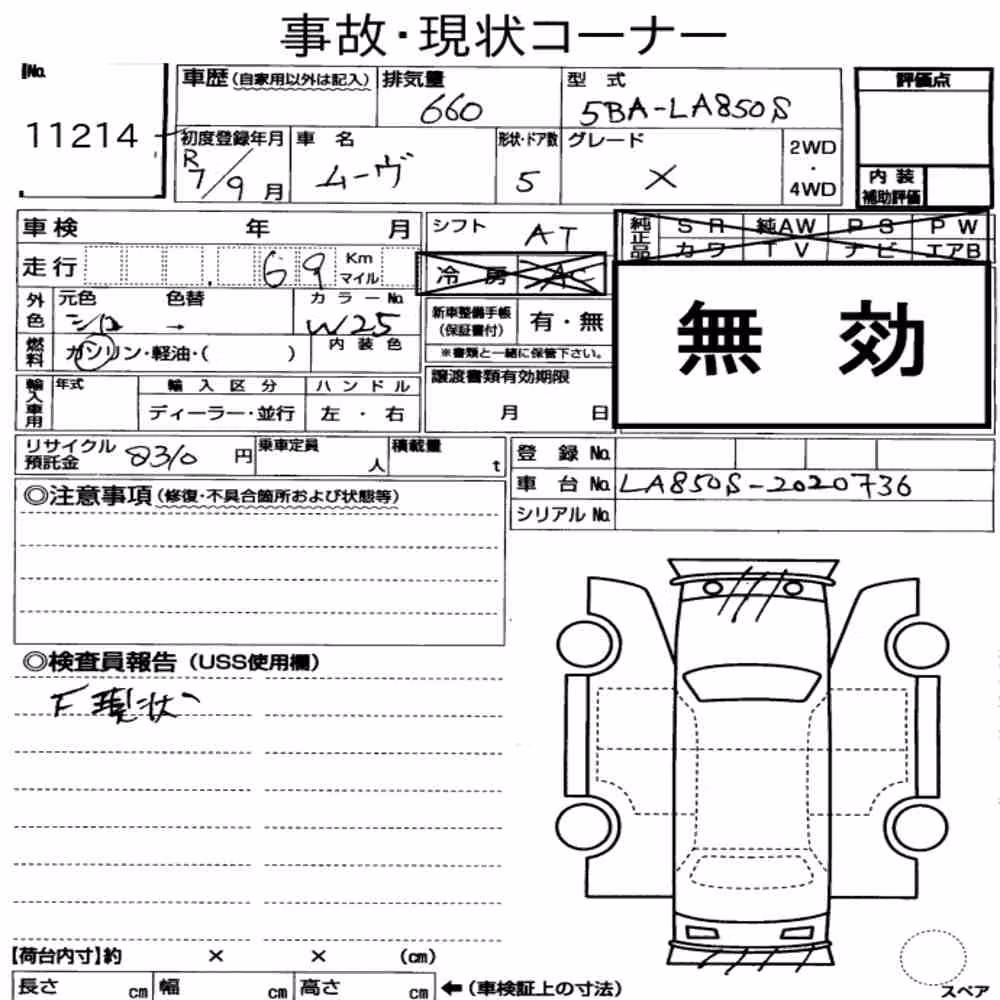 事故・現状コーナー
No. 11214
車歴(自家用以外は記入)
排気量 660
型式 5BA-LA850S
評価点
初度登録年月 R7/9月
車名 ムーヴ
形状・ドア数 5
グレード X
2WD・4WD
内装補助評価
車検 年 月
シフト AT
純正品 SR 純AW PS PW
カワ TV ナビ エアB
走行 69 Km マイル
冷房 AC
外色 元色 シロ 色替 → カラーNo. W25
新車整備手帳(保証書付) 有・無
※書類と一緒に保管下さい。
無効
燃料 ガソリン・軽油・( )
内装色
譲渡書類有効期限
月 日
輸入車用 年式 輸入区分 ハンドル
ディーラー・並行 左・右
リサイクル預託金 8310 円
乗車定員 人
積載量 t
登録No.
車台No. LA850S-2020736
シリアルNo.
◎注意事項(修復・不具合箇所および状態等)
◎検査員報告(USS使用欄)
F現状
【荷台内寸】約 × × (cm)
長さ cm 幅 cm 高さ cm ←(車検証上の寸法)
スペア